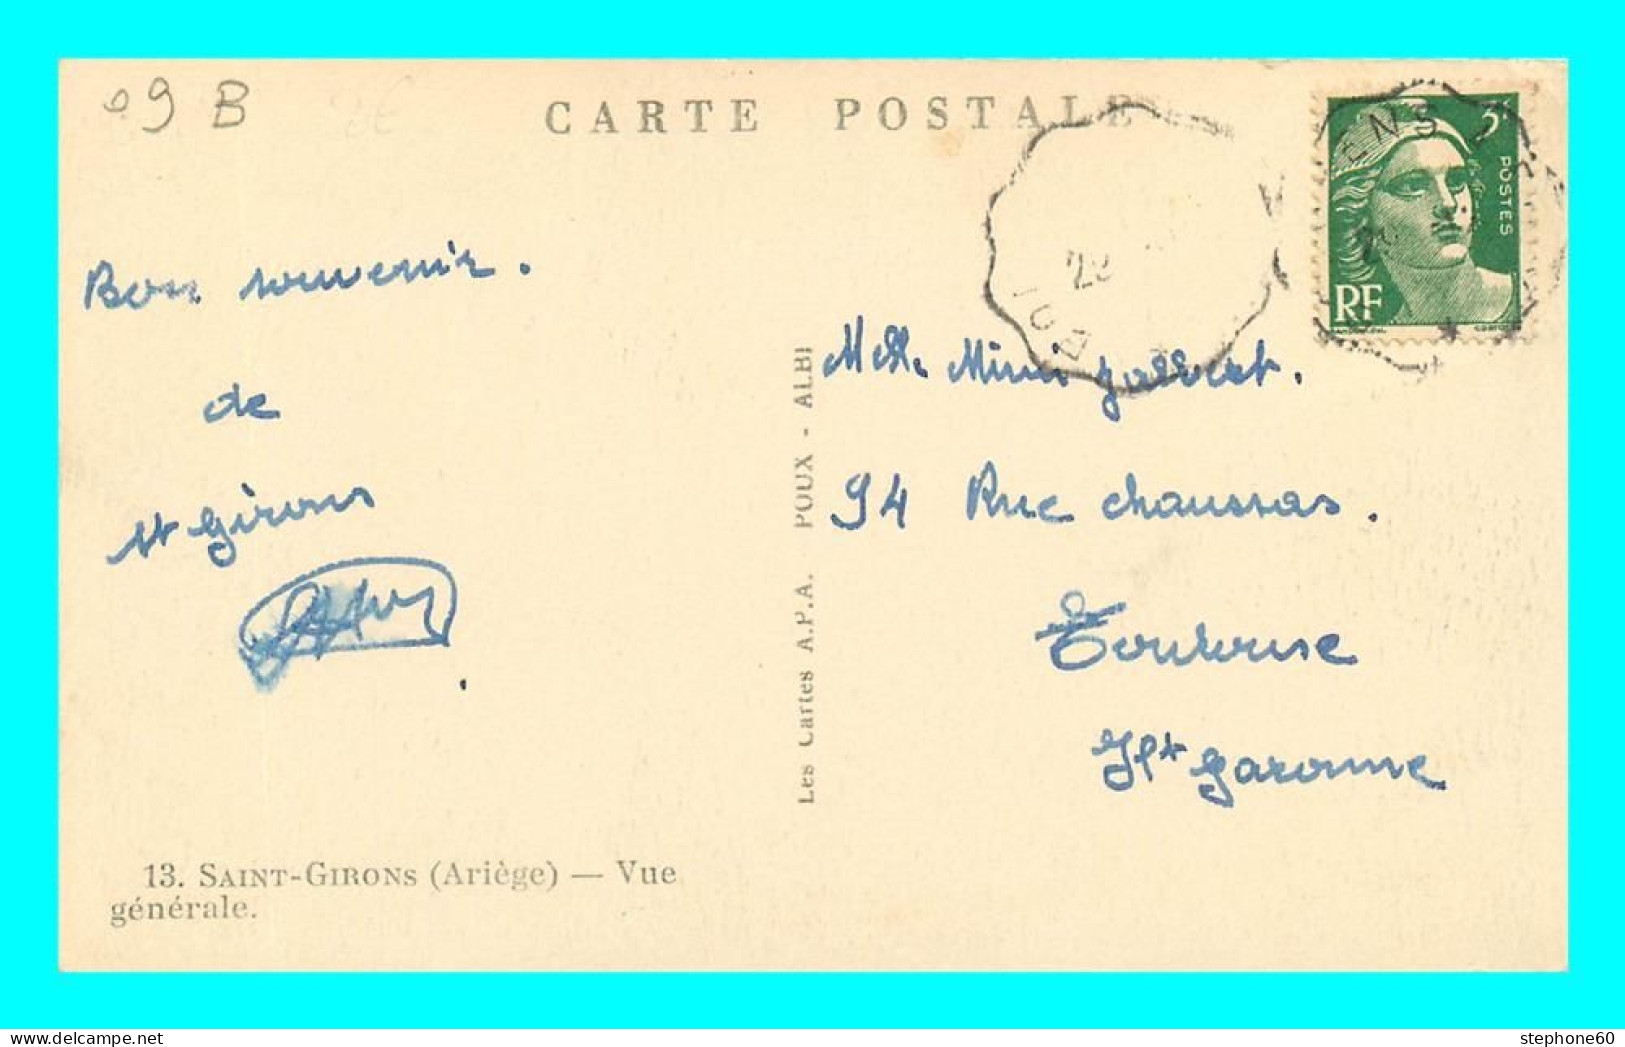 09 B
CARTE POSTALE
3F
POSTES
RF
Bon souvenir.
de
St Girons
Melle Mimi Jalbert.
94 Rue chaussas.
Toulouse
Hte Garonne
Les Cartes A.P.A. POUX - ALBI
13. SAINT-GIRONS (Ariège) — Vue
générale.
stephone60